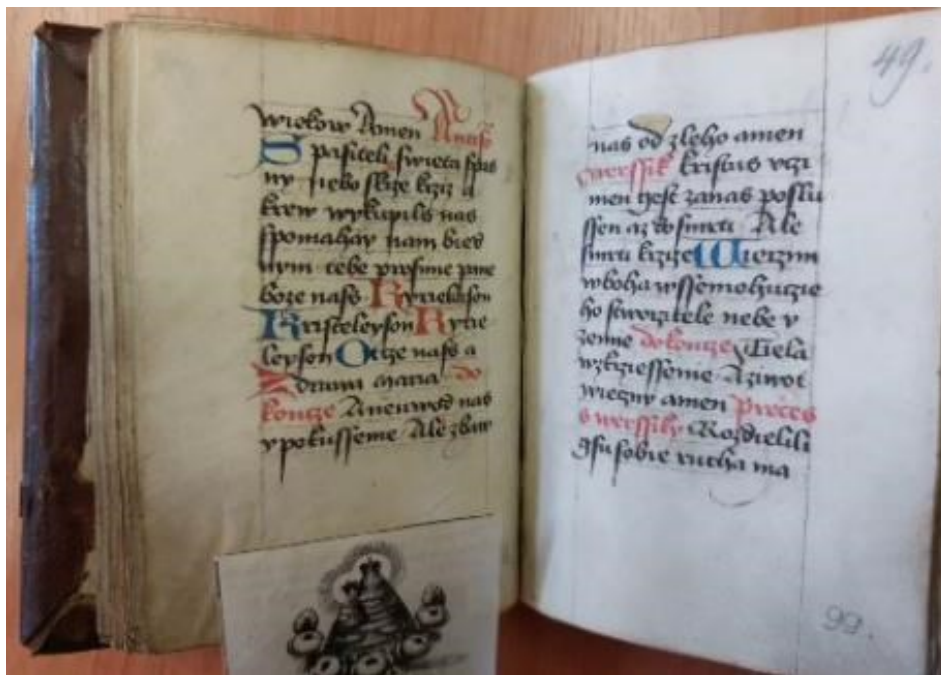 wiekow Amen Antiff
Spasiteli swieta spas
ny nebo skrze krziz a
krew wykupils nas
spomahay nam bied
nym tebe prosyme pane
boze nass Kyrieleyson
Kristeleyson Kyrie
leyson Otcze nass a
Zdrawa Maria do
koncze Aneuwod nas
vpokussenie Ale zbaw
49.
nas od zleho amen
Werssik kristus vczi
nien gest zanas poslu
ssen az do smrti Ale
smrti krzize Wierzym
wboha wssemohucie
ho stworzitele nebe y
zemie dokoncze Tiela
wzkrziessenie Aziwot
wieczny amen Preces
s werssiky Rozdielili
gsu sobie rucha ma
99.